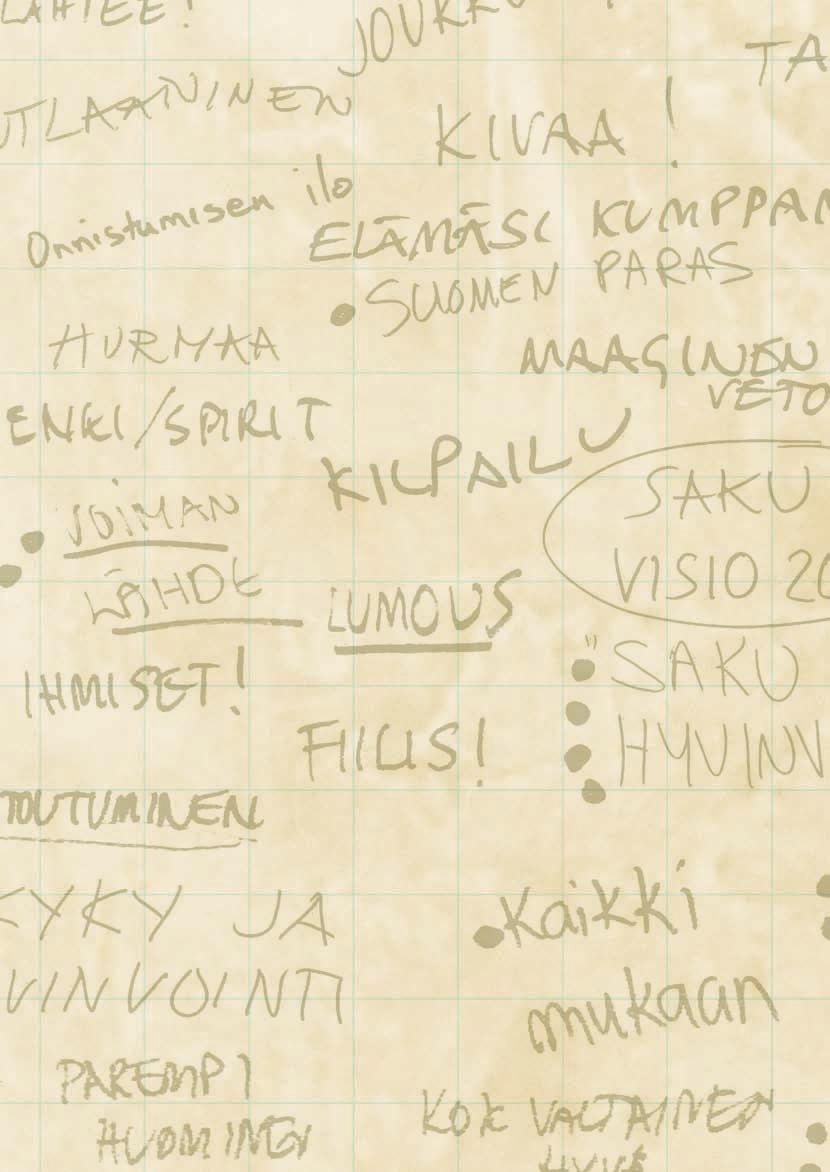 LÄHTEE!
JOUKKU
TA
UTLAANINEN
KIVAA!
Onnistumisen ilo
ELÄMÄSI KUMPPAN
SUOMEN PARAS
HURMAA
MAAGINEN
VETO
ENKI/SPIRIT
KILPAILU
SAKU
VISIO 20
VOIMAN
LÄHDE
LUMOUS
" SAKU
HYVINV
IHMISET!
FIILIS!
TOUTUMINEN
KYKY JA
VINVOINTI
Kaikki
mukaan
PAREMPI
HUOMINEN
KOKVALTAINEN
HYVÄ